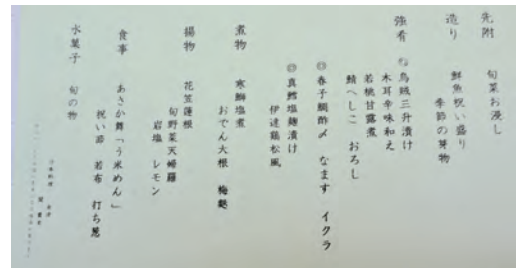 先附
旬菜お浸し
造り
鮮魚祝い盛り
季節の芽物
強肴
烏賊三升漬け
木耳辛味和え
若桃甘露煮
鯖へしこ おろし
◎春子鯛酢〆 なます イクラ
◎真鱈塩麹漬け
伊達鶏松風
煮物
寒鰤塩煮
おでん大根 梅麩
揚物
花笠蓮根
旬野菜天婦羅
岩塩 レモン
食事
あさか舞「う米めん」
祝い節 若布 打ち葱
水菓子
旬の物